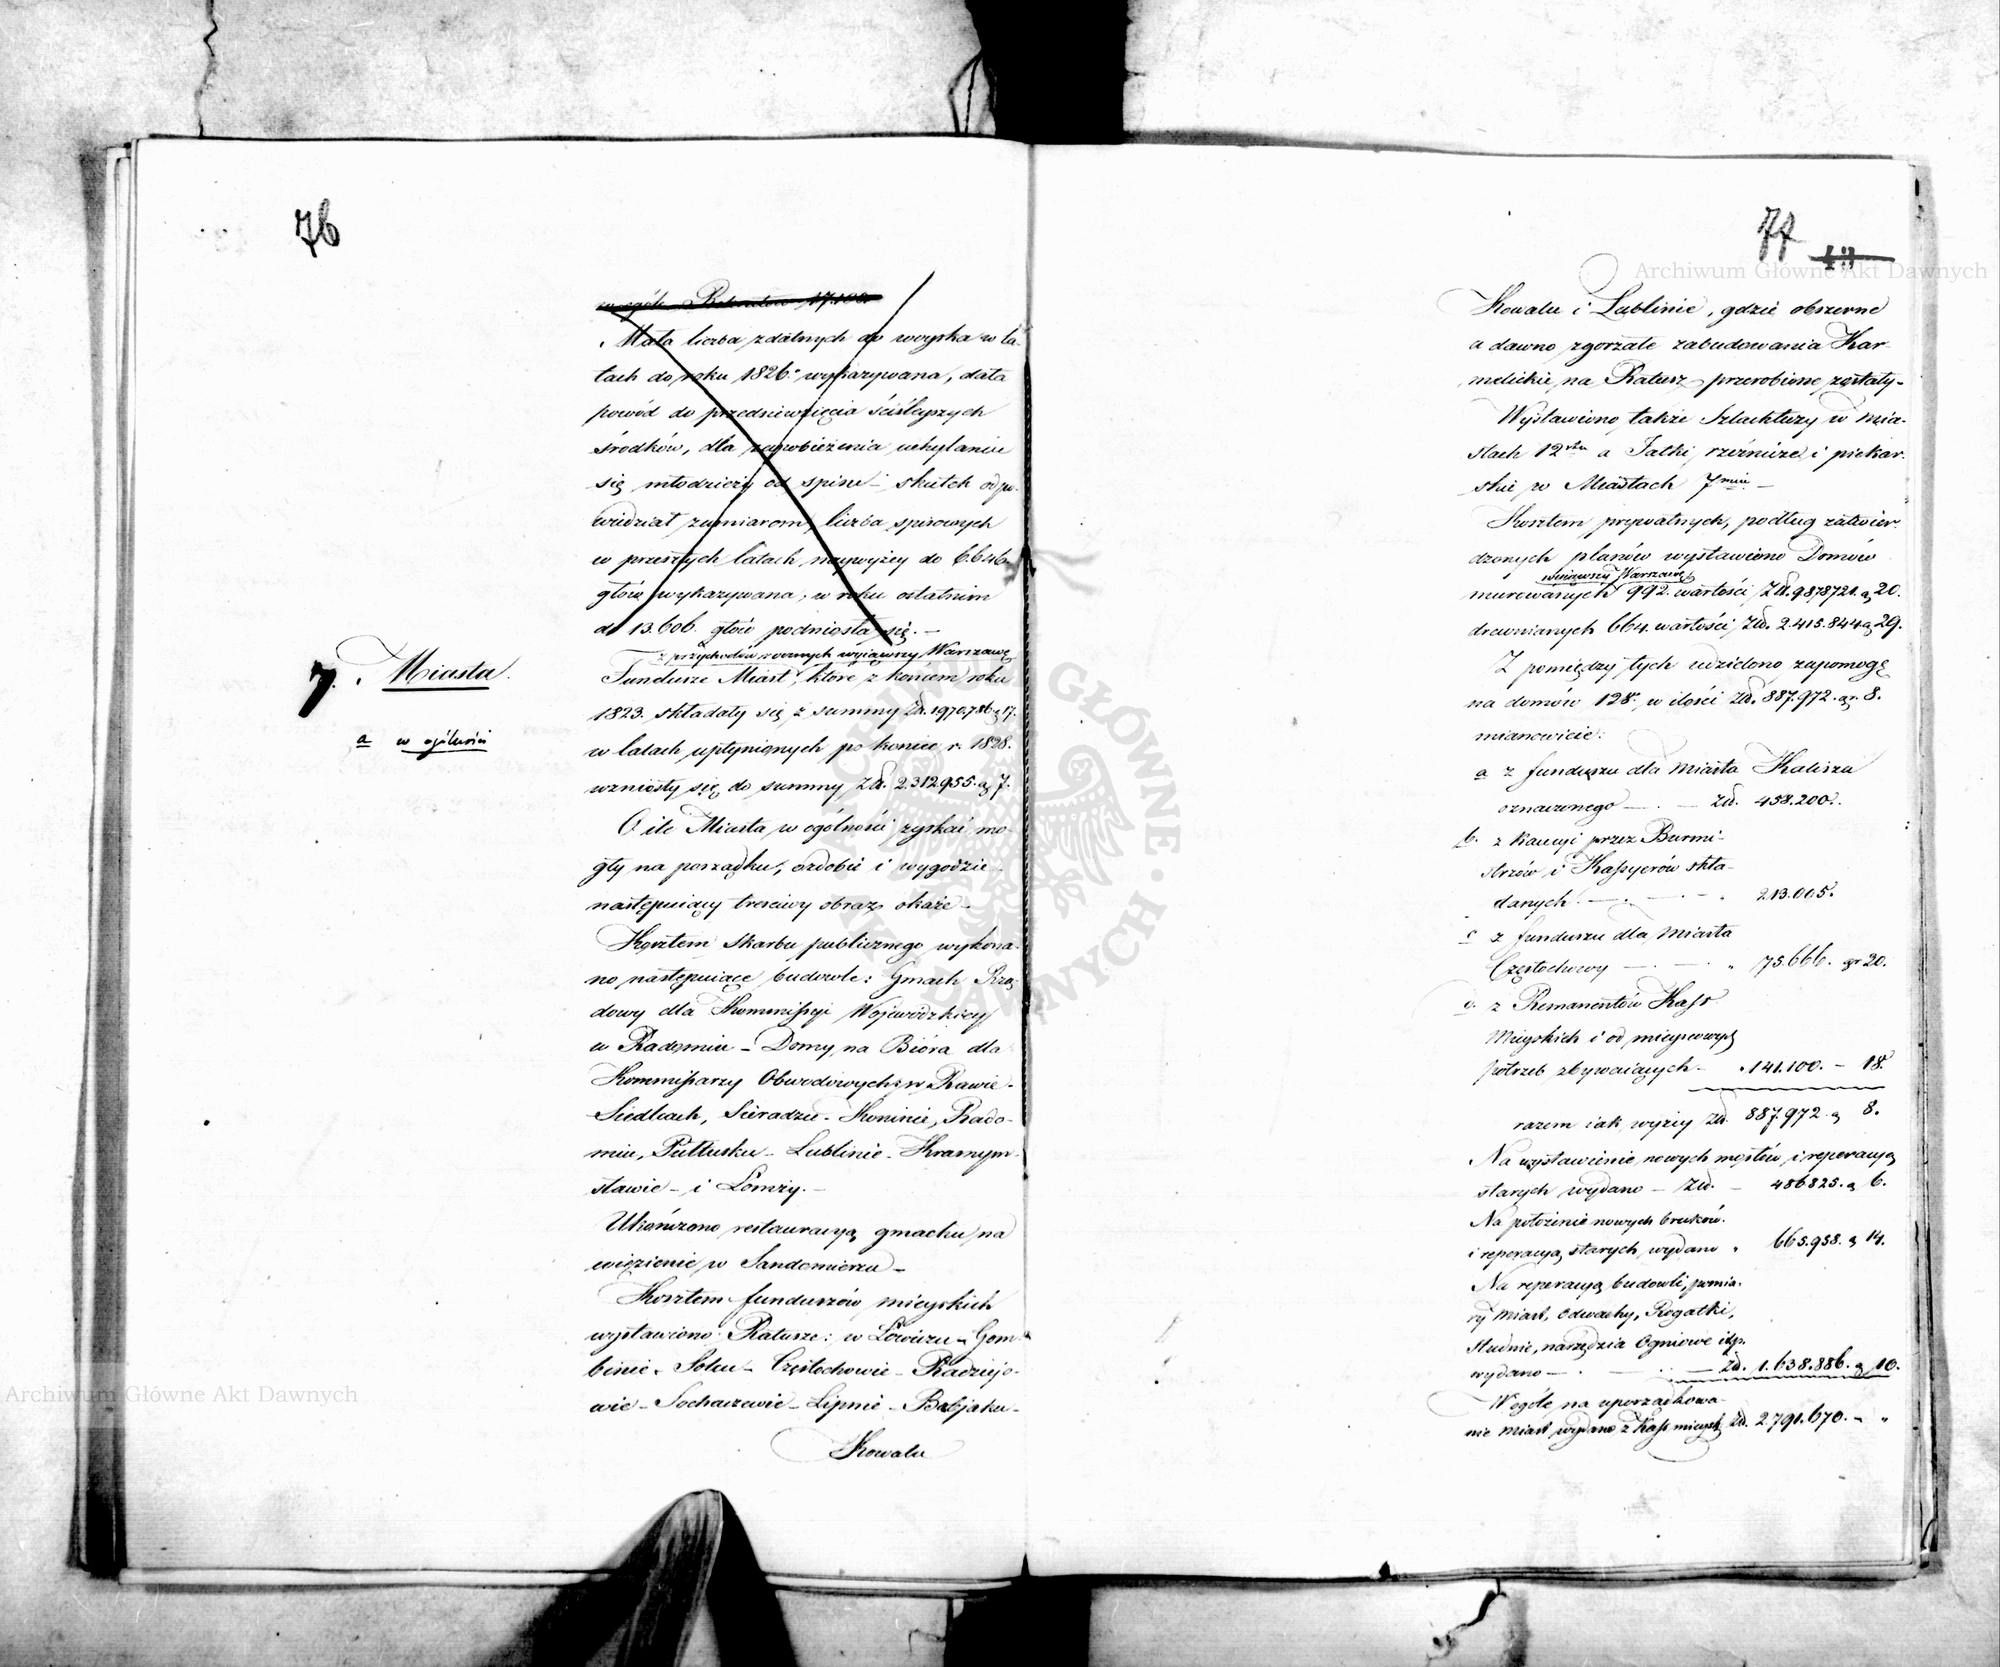 76
w ogóle Rekrutów 17.100
Mała liczba zdatnych do woyska w la-
tach do roku 1826º wykazywana, dała
powód do przedsiewzięcia ściśleyszych
środków, dla zapobieżenia uchylaniu
się młodzieży od spisu – skutek odpo-
wiedział zamiarom, liczba spisowych
w przeszłych latach naywyżey do 6.646
głów wykazywana, w roku ostatnim
do 13.606. głów podniosła się. –
7. Miasta.
a w ogólności
z przychodów rocznych wyiąwszy Warszawę
Fundusze Miast, które z końcem roku
1823. składały się z summy Zł. 1970.786 g 17.
w latach upłynionych po koniec r. 1828.
wzniosły się do summy Zł. 2.312.955. g 7.
O ile Miasta w ogólności zyskać mo-
gły na porządku, ozdobie i wygodzie
następuiący treściwy obraz okaże –
Kosztem Skarbu publicznego wykona-
no następuiące budowle: Gmach Rzą-
dowy dla Kommissyi Wojewódzkiey
w Radomiu – Domy na Bióra dla
Kommissarzy Obwodowych w Rawie –
Siedlcach, Sieradzu – Koninie, Rado-
miu, Pułtusku – Lublinie – Krasnym-
stawie – i Łomży. –
Ukończono restauracyą gmachu na
więzienie w Sandomierzu –
Kosztem funduszów mieyskich
wystawiono Ratusze: w Łowiczu – Gom-
binie – Solcu – Częstochowie – Radziejo-
wie – Sochaczewie – Lipnie – Babjaku –
Kowalu
77
Kowalu i Lublinie, gdzie obszerne
a dawno zgorzałe zabudowania Kar-
melickie, na Ratusz przerobione zostały –
Wystawiono także Szlachtuzy w mia-
stach 12stu a Jatki rzeźnicze i piekar-
skie w Miastach 7miu –
Kosztem prywatnych, podług zatwier-
dzonych planów wystawiono Domów
wyiąwszy Warszawę
murowanych 992. wartości Zł. 9.878721. g 20.
drewnianych 664. wartości Zł. 2.415.844 g 29.
Z pomiędzy tych udzielono zapomogę
na domów 128. w ilości Zł. 887.972. gr. 8.
mianowicie:
a z funduszu dla Miasta Kalisza
oznaczonego – . – Zł. 458.200.
b. z Kaucyi przez Burmi-
strzów i Kassyerów skła-
danych – . – " 213.005.
c z funduszu dla Miasta
Częstochowy – . – " 75.666. gr 20.
d. z Remanentów Kass
Mieyskich i od mieyscowych
potrzeb zbywaiących – " 141.100. – 18.
razem iak wyżey Zł. 887.972 g 8.
Na wystawienie nowych mostów i reperacyą
starych wydano – Zł. – 486825. g 6.
Na położenie nowych bruków
i reperacyą starych wydano " 665.958. g 14.
Na reperacyą budowli, pomia-
ry Miast, Odwachy, Rogatki,
studnie, narzędzia Ogniowe itp.
wydano – . – Zł. 1.638.886. g 10.
W ogóle na uporządkowa-
nie Miast wydano z Kass mieyskich Zł. 2.791.670. – "
Archiwum Główne Akt Dawnych
Archiwum Główne Akt Dawnych